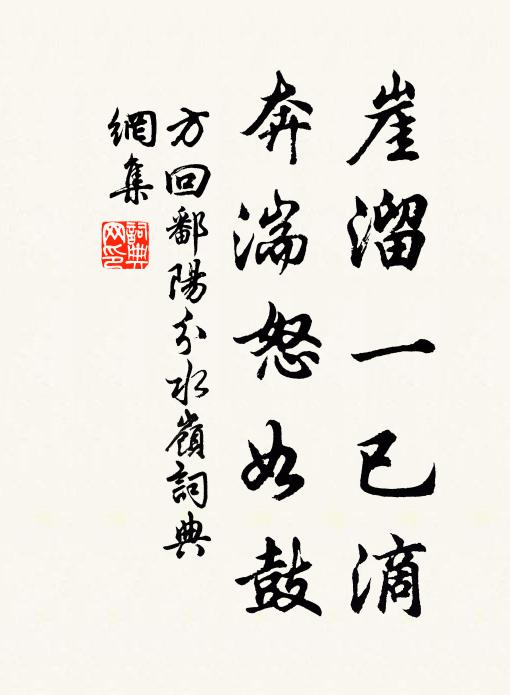 崖溜一已滴
奔湍怒如鼓
方回鄱陽分水嶺詞典
網集
詞典
网印